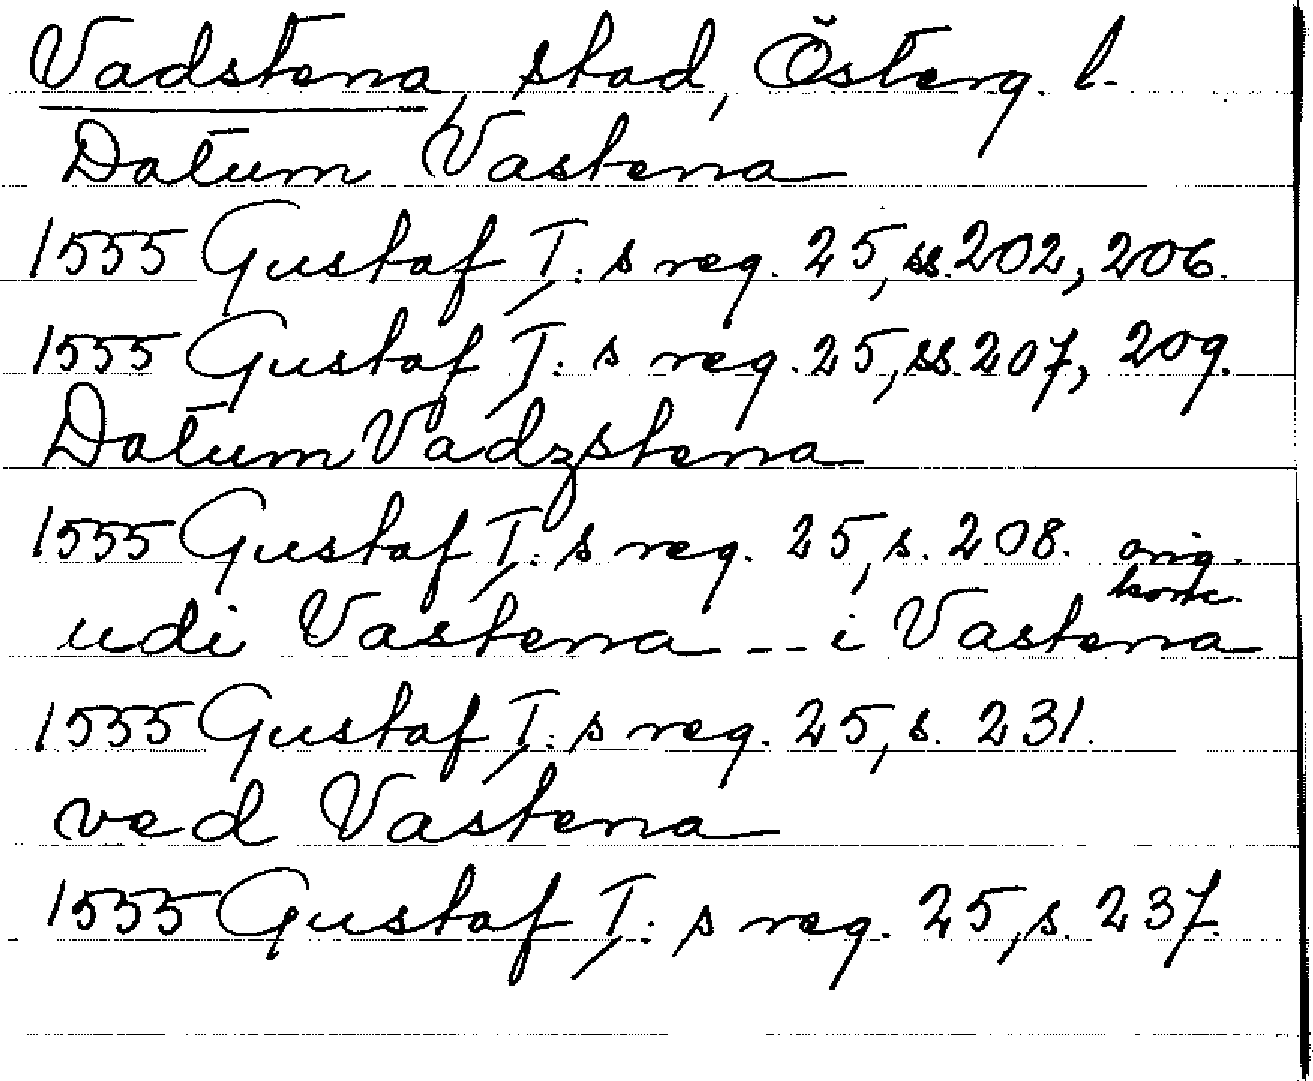 Vadstena, stad, Österg. l.
Datum Vastena
1555 Gustaf I:s reg. 25, ss. 202, 206.
1555 Gustaf I:s reg. 25, ss. 207, 209.
Datum Vadzstena
1555 Gustaf I:s reg. 25, s. 208. orig.
konc.
udi Vastena -- i Vastena
1555 Gustaf I:s reg. 25, s. 231.
ved Vastena
1555 Gustaf I:s reg. 25, s. 237.